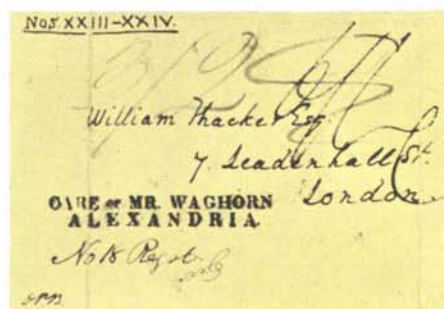 Nos. XXIII-XXIV.
William Thacker Esq
7. Leadenhall St.
London
CARE OF MR. WAGHORN
ALEXANDRIA.